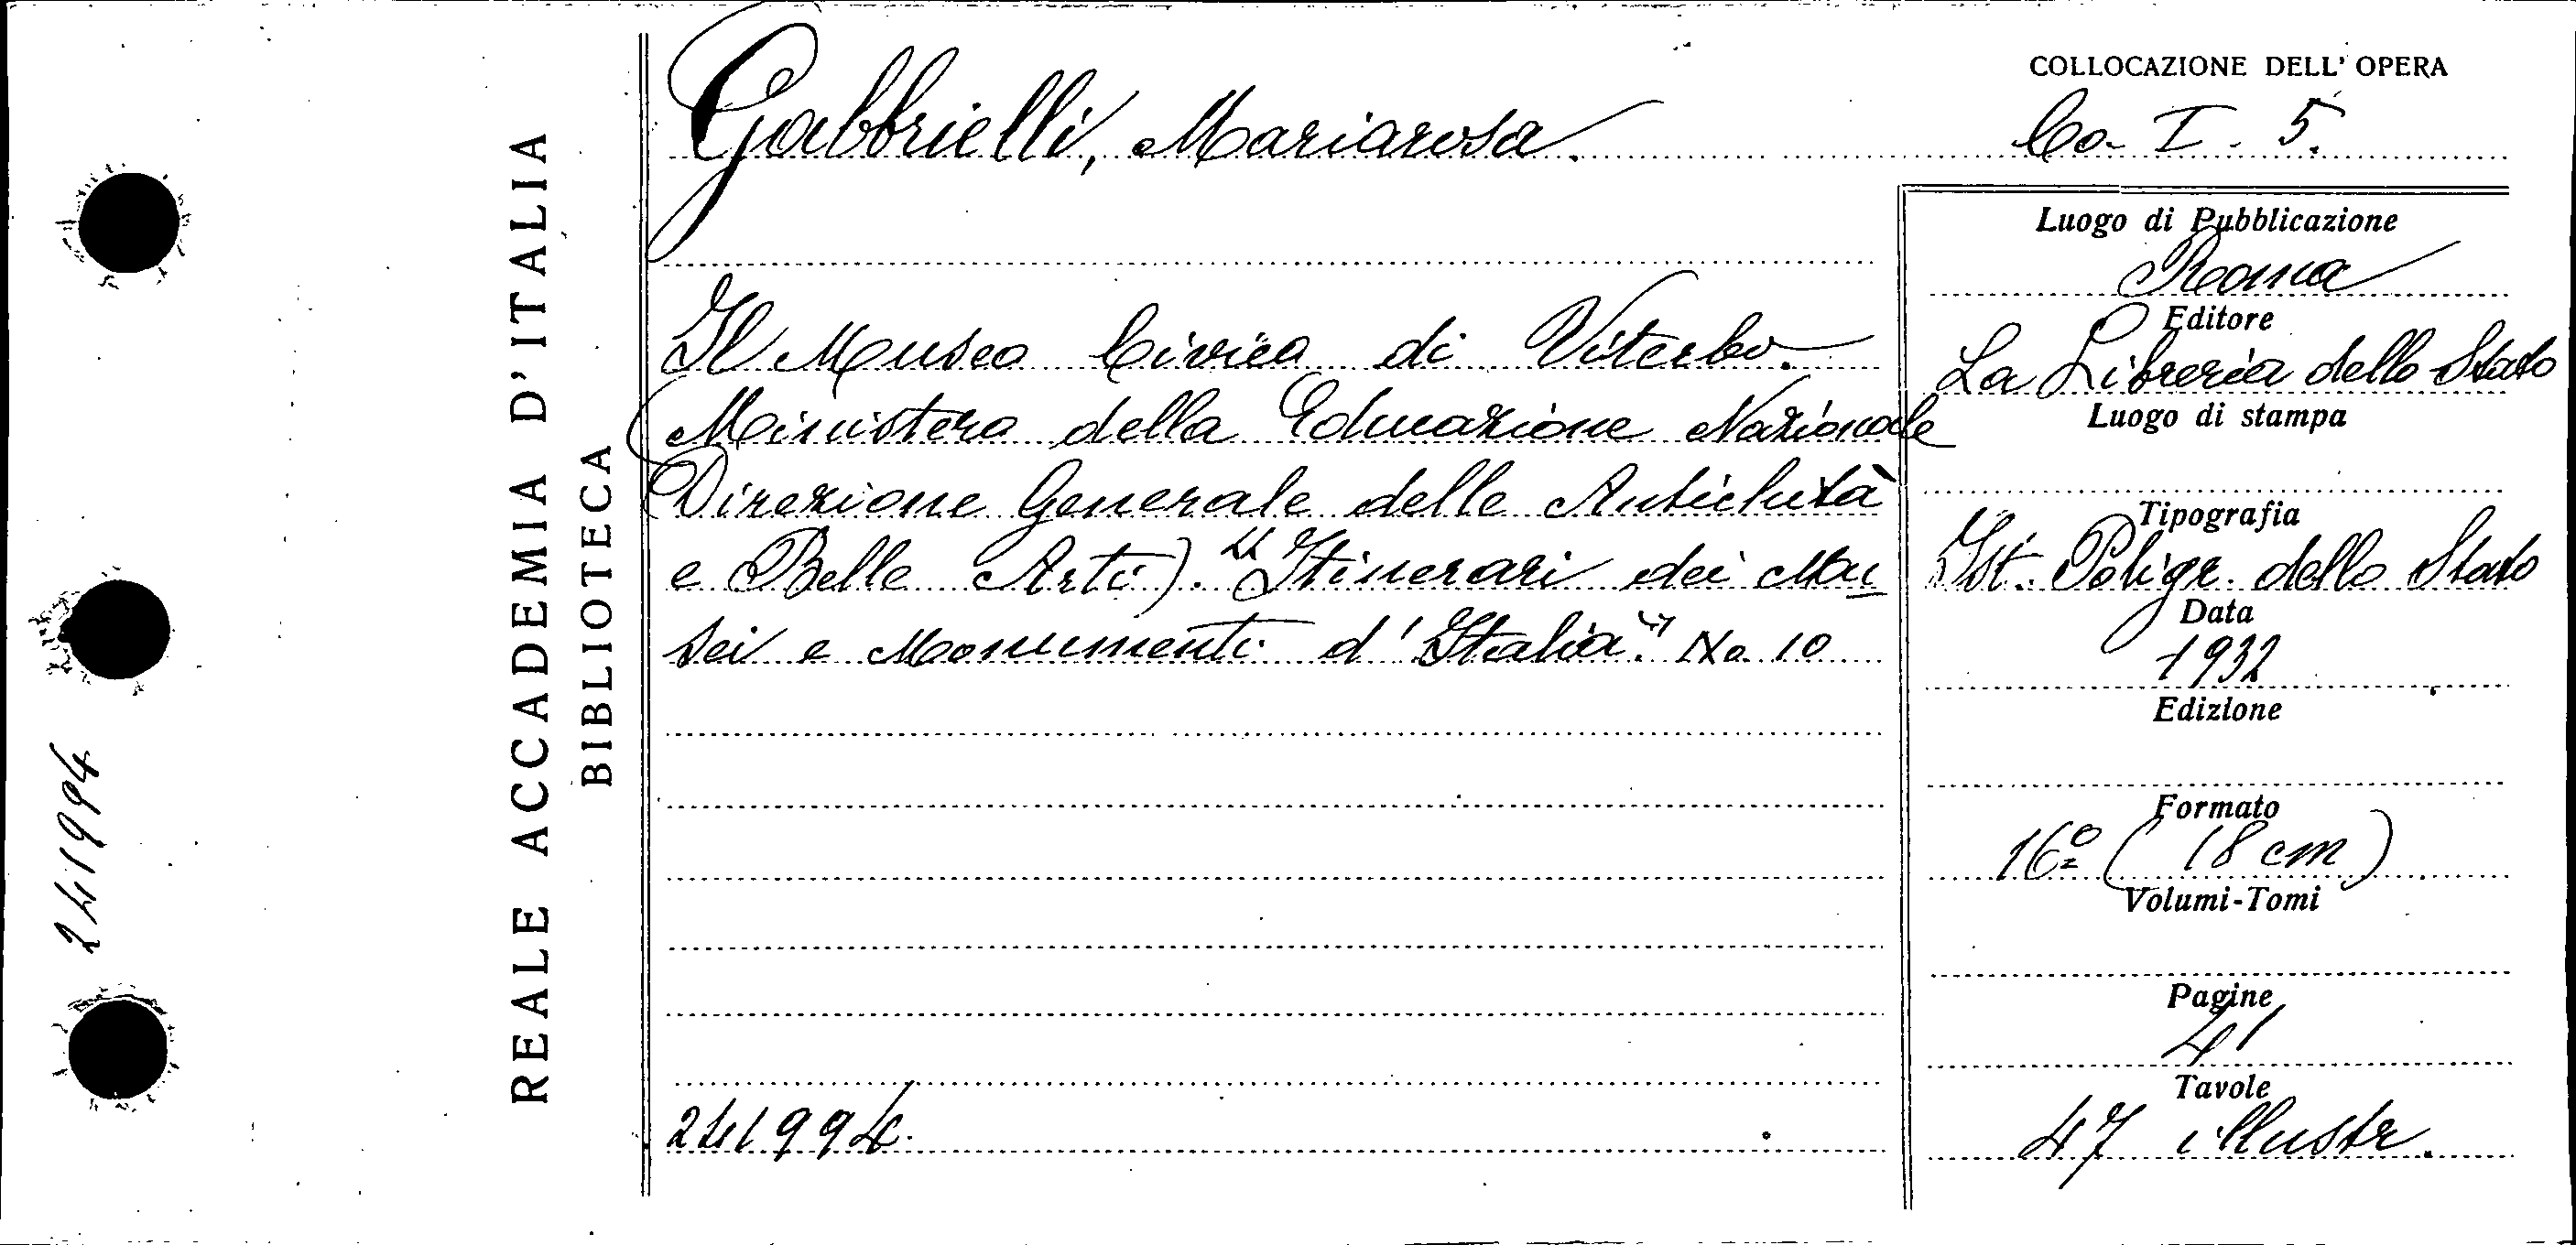 241994
REALE ACCADEMIA D'ITALIA
BIBLIOTECA
Gabbrielli, Mariarosa.
Il Museo Civico di Viterbo.
(Ministero della Educazione Nazionale
Direzione Generale delle Antichità
e Belle Arti). "Itinerari dei Mu
sei e Monumenti d'Italia". No. 10
241994.
COLLOCAZIONE DELL' OPERA
Co. I. 5.
Luogo di Pubblicazione
Roma
Editore
La Libreria dello Stato
Luogo di stampa
Tipografia
Ist. Poligr. dello Stato
Data
1932
Edizione
Formato
16º (18 cm)
Volumi-Tomi
Pagine
41
Tavole
47 illustr.